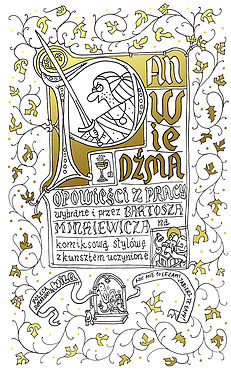 PAN
Wie
DŹMA
OPOWIEŚCI Z PRACY
wybrane i przez BARTOSZA
MINKIEWICZA na
komiksową stylówę
z kunsztem uczynione